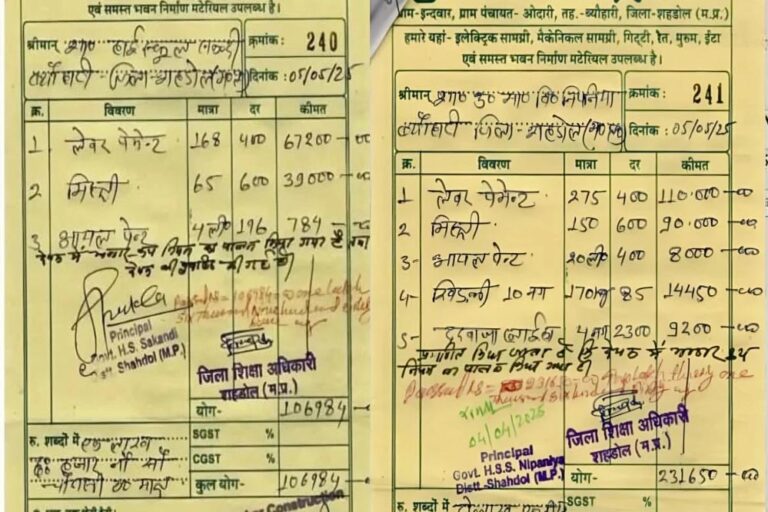 एवं समस्त भवन निर्माण मटेरियल उपलब्ध है।
श्रीमान् शास0 हाई स्कूल सकन्दी
क्रमांक : 240
ब्यौहारी जिला शहडोल (म0प्र0)
दिनांक : 05/05/25
क्र. विवरण मात्रा दर कीमत
1 लेवर पेमेन्ट 168 400 67200-00
2 मिस्त्री 65 600 39000-00
3 आयल पेन्ट 4ली0 196 784-00
Principal
Govt. H.S. Sakandi
Distt. Shahdol (M.P.)
Passed
जिला शिक्षा अधिकारी
शहडोल (म.प्र.)
योग- 106984-00
रु. शब्दों में एक लाख
SGST %
छः हजार नौ सौ
CGST %
चौरासी रू0 मात्र
कुल योग- 106984-00
Construction
ग्राम-इन्दवार, ग्राम पंचायत- ओदारी, तह.-ब्यौहारी, जिला-शहडोल (म.प्र.)
हमारे यहां- इलेक्ट्रिक सामग्री, मैकेनिकल सामग्री, गिट्टी, रेत, मुरूम, ईंटा
एवं समस्त भवन निर्माण मटेरियल उपलब्ध है।
श्रीमान् शास0 उ0 मा0 वि0 निपनिया
क्रमांक : 241
ब्यौहारी जिला शहडोल (म0प्र0)
दिनांक : 05/05/25
क्र. विवरण मात्रा दर कीमत
1 लेवर पेमेन्ट 275 400 110.000-00
2 मिस्त्री 150 600 90.000-00
3- आयल पेन्ट 20ली0 400 8000-00
4- खिडकी 10 नग 170 85 14450-00
5- दरवाजा 4 नग 2300 9200-00
04/04/2025
Principal
Govt. H.S.S. Nipaniya
Distt-Shahdol (M.P.)
जिला शिक्षा अधिकारी
शहडोल (म.प्र.)
योग- 231650-00
रु. शब्दों में
SGST %